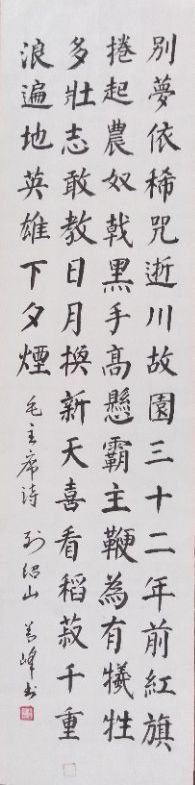 別夢依稀咒逝川故園三十二年前紅旗
捲起農奴戟黑手高懸霸主鞭為有犧牲
多壯志敢教日月換新天喜看稻菽千重
浪遍地英雄下夕煙 毛主席詩 到韶山 峰书